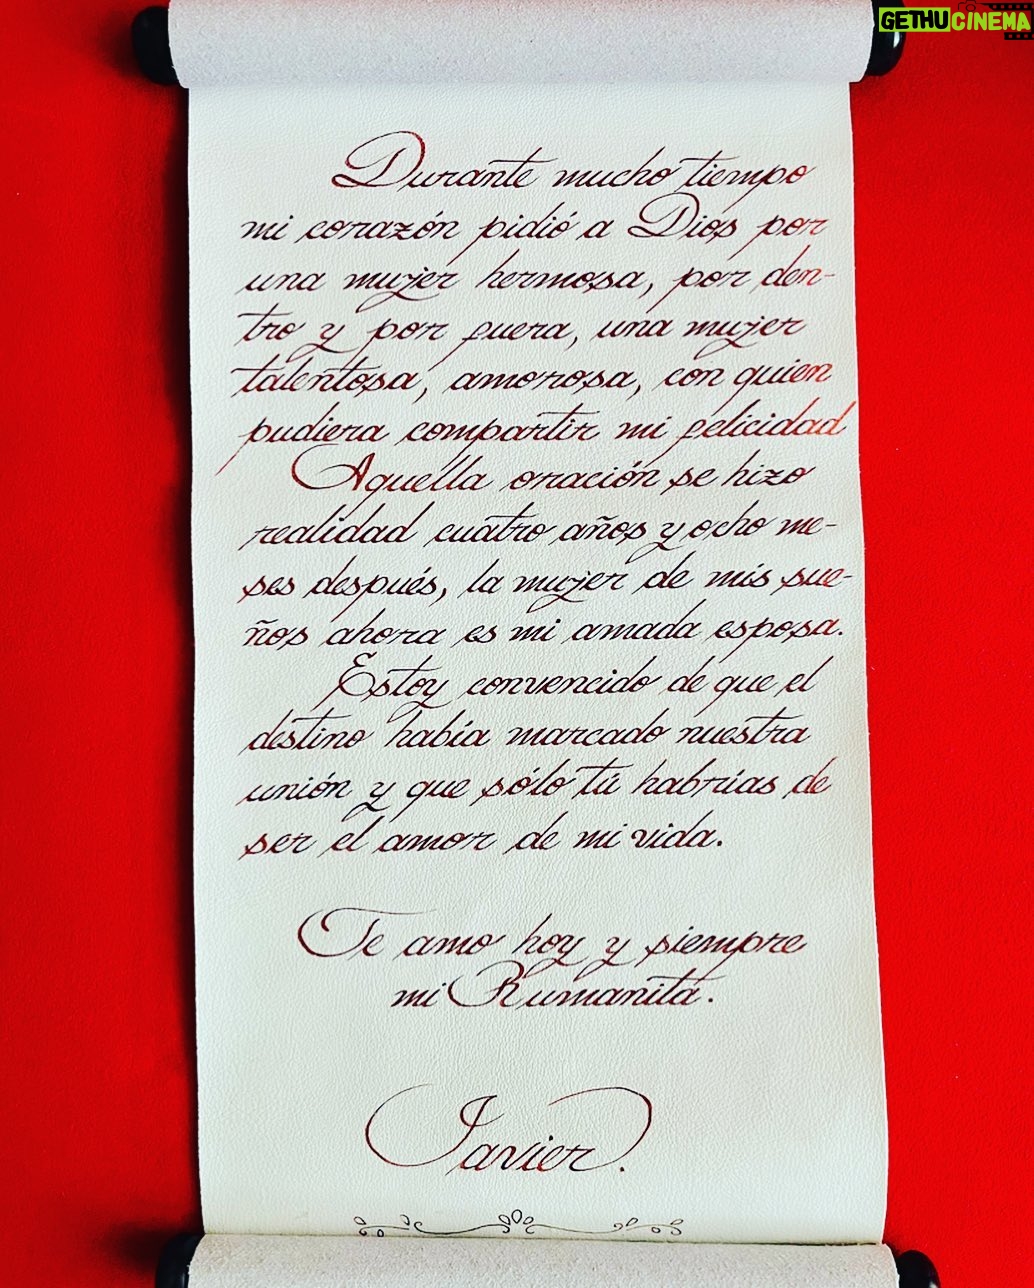 GETHU CINEMA
Durante mucho tiempo
mi corazón pidió a Dios por
una mujer hermosa, por den-
tro y por fuera, una mujer
talentosa, amorosa, con quien
pudiera compartir mi felicidad
Aquella oración se hizo
realidad cuatro años y ocho me-
ses después, la mujer de mis sue-
ños ahora es mi amada esposa.
Estoy convencido de que el
destino había marcado nuestra
unión y que sólo tú habrías de
ser el amor de mi vida.
Te amo hoy y siempre
mi Rumanita.
Javier.